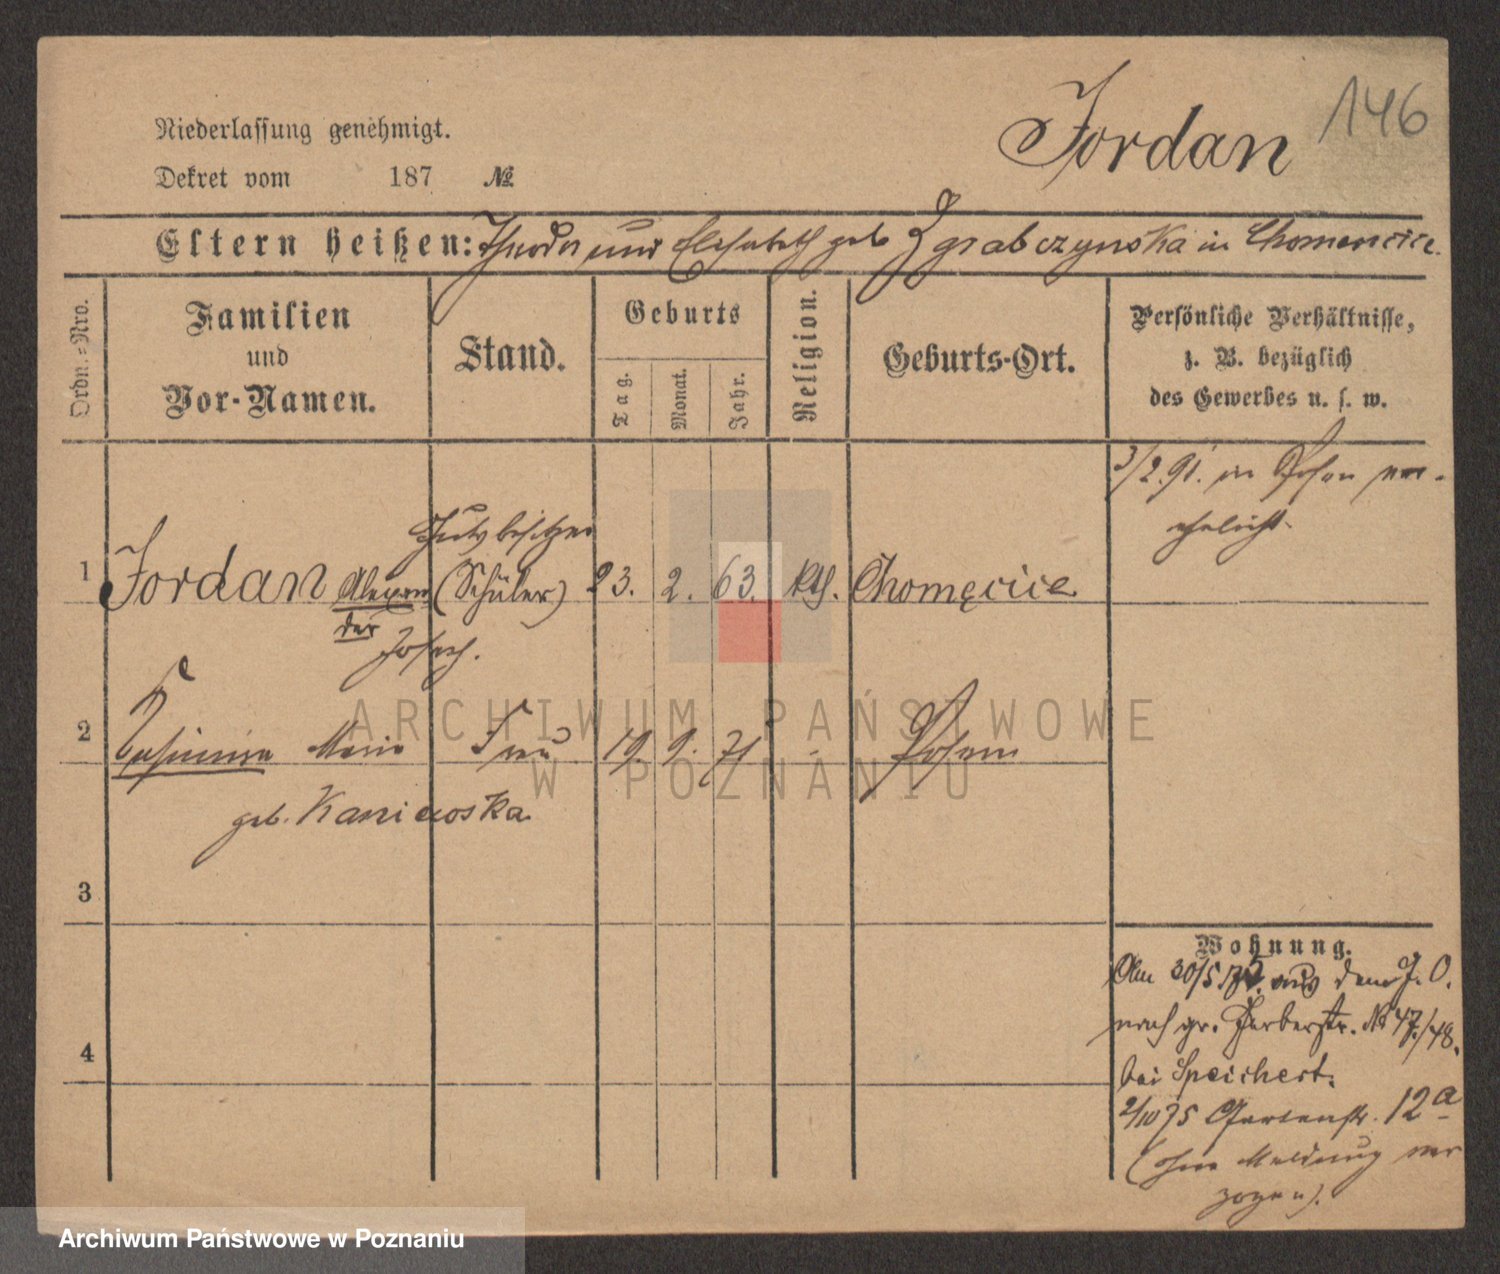 146
Jordan
Niederlassung genehmigt.
Dekret vom 187 №
Eltern heißen: Theodor und Elisabeth geb Zgrabczynska in Chomencice.
Ordn.=Nro.
Familien
und
Vor-Namen.
Stand.
Geburts
Tag.
Monat.
Jahr.
Religion.
Geburts-Ort.
Persönliche Verhältnisse,
z. B. bezüglich
des Gewerbes u. s. w.
3/2.91. in Posen ver-
ehelicht.
Gutsbesitzer
1 Jordan Alexan (Schüler) 23. 2. 63. kth. Chomęcice
der
Josef.
2 Casimira Maria Frau 19. 9. 71 - Posen
geb. Kaniewska
3
4
Wohnung.
Am 30/5 75. aus dem J. O.
nach gr. Gerberstr. № 47./48.
bei Speichert.
2/10 75 Gartenstr. 12a
(ohne Meldung ver
zogen).
ARCHIWUM PAŃSTWOWE
W POZNANIU
Archiwum Państwowe w Poznaniu